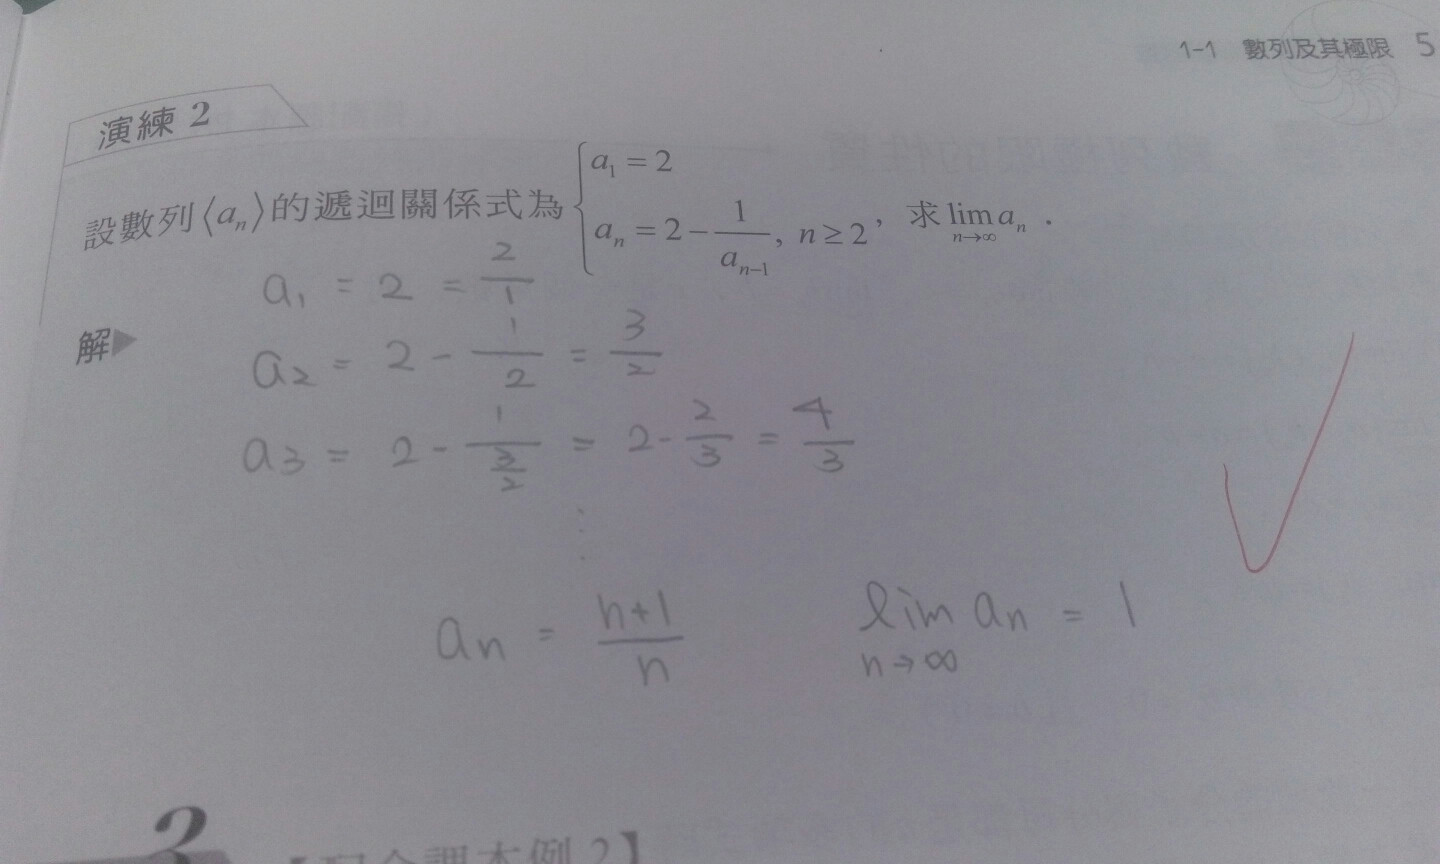 1-1 數列及其極限 5
演練 2
設數列⟨aₙ⟩的遞迴關係式為 { a₁ = 2 ; aₙ = 2 - 1/aₙ₋₁ , n ≥ 2 , 求 lim_{n→∞} aₙ .
解▶
a₁ = 2 = 2/1
a₂ = 2 - 1/2 = 3/2
a₃ = 2 - 1/(3/2) = 2 - 2/3 = 4/3
⋮
aₙ = (n+1)/n   lim_{n→∞} aₙ = 1
3
課本例 2】